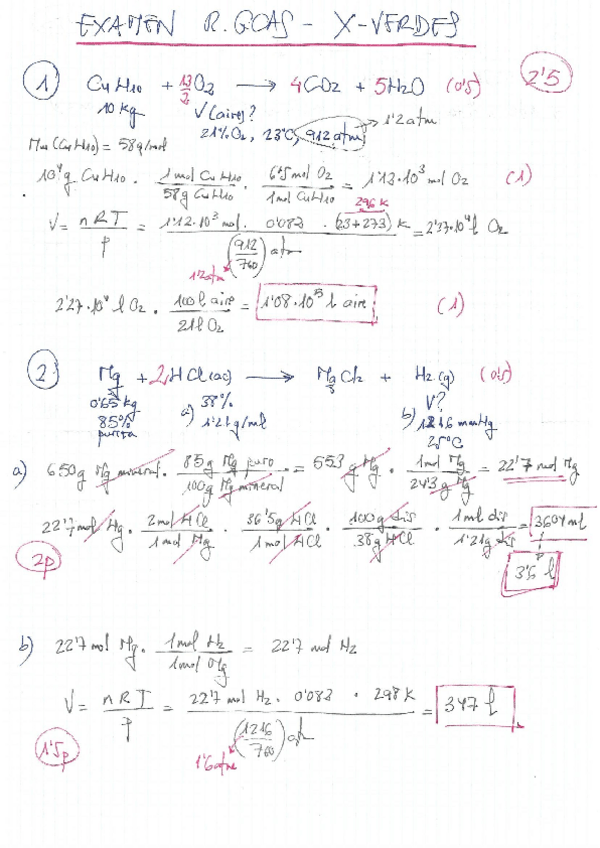 EXAMEN R. GOAS - X-VERDES
1) C4H10 + 13/2 O2 → 4CO2 + 5H2O (0'5) 2'5
10 kg V(aire)? 1'2 atm
21% O2, 23°C, 912 atm
Mm (C4H10) = 58g/mol
10^4 g C4H10 · 1 mol C4H10 / 58g C4H10 · 6'5 mol O2 / 1 mol C4H10 = 1'13·10^3 mol O2 (1)
296 K
V = nRT / P = 1'12·10^3 mol · 0'082 · (23+273) K / (912/760) atm = 2'27·10^4 l O2
1'2 atm
2'27·10^4 l O2 · 100 l aire / 21 l O2 = 1'08·10^5 l aire (1)
2) Mg + 2HCl (ac) → MgCl2 + H2 (g) (0'5)
0'65 kg a) 38% V?
85% 1'21 g/ml b) 1216 mmHg
pureza 25°C
a) 650g Mg mineral · 85g Mg puro / 100g Mg mineral = 553 g Mg · 1 mol Mg / 24'3 g Mg = 22'7 mol Mg
22'7 mol Mg · 2 mol HCl / 1 mol Mg · 36'5g HCl / 1 mol HCl · 100g dis / 38g HCl · 1 ml dis / 1'21g dis = 3604 ml
2p 3'6 l
b) 22'7 mol Mg · 1 mol H2 / 1 mol Mg = 22'7 mol H2
V = nRT / P = 22'7 mol H2 · 0'082 · 298 K / (1216/760) atm = 347 l
1'5p 1'6 atm